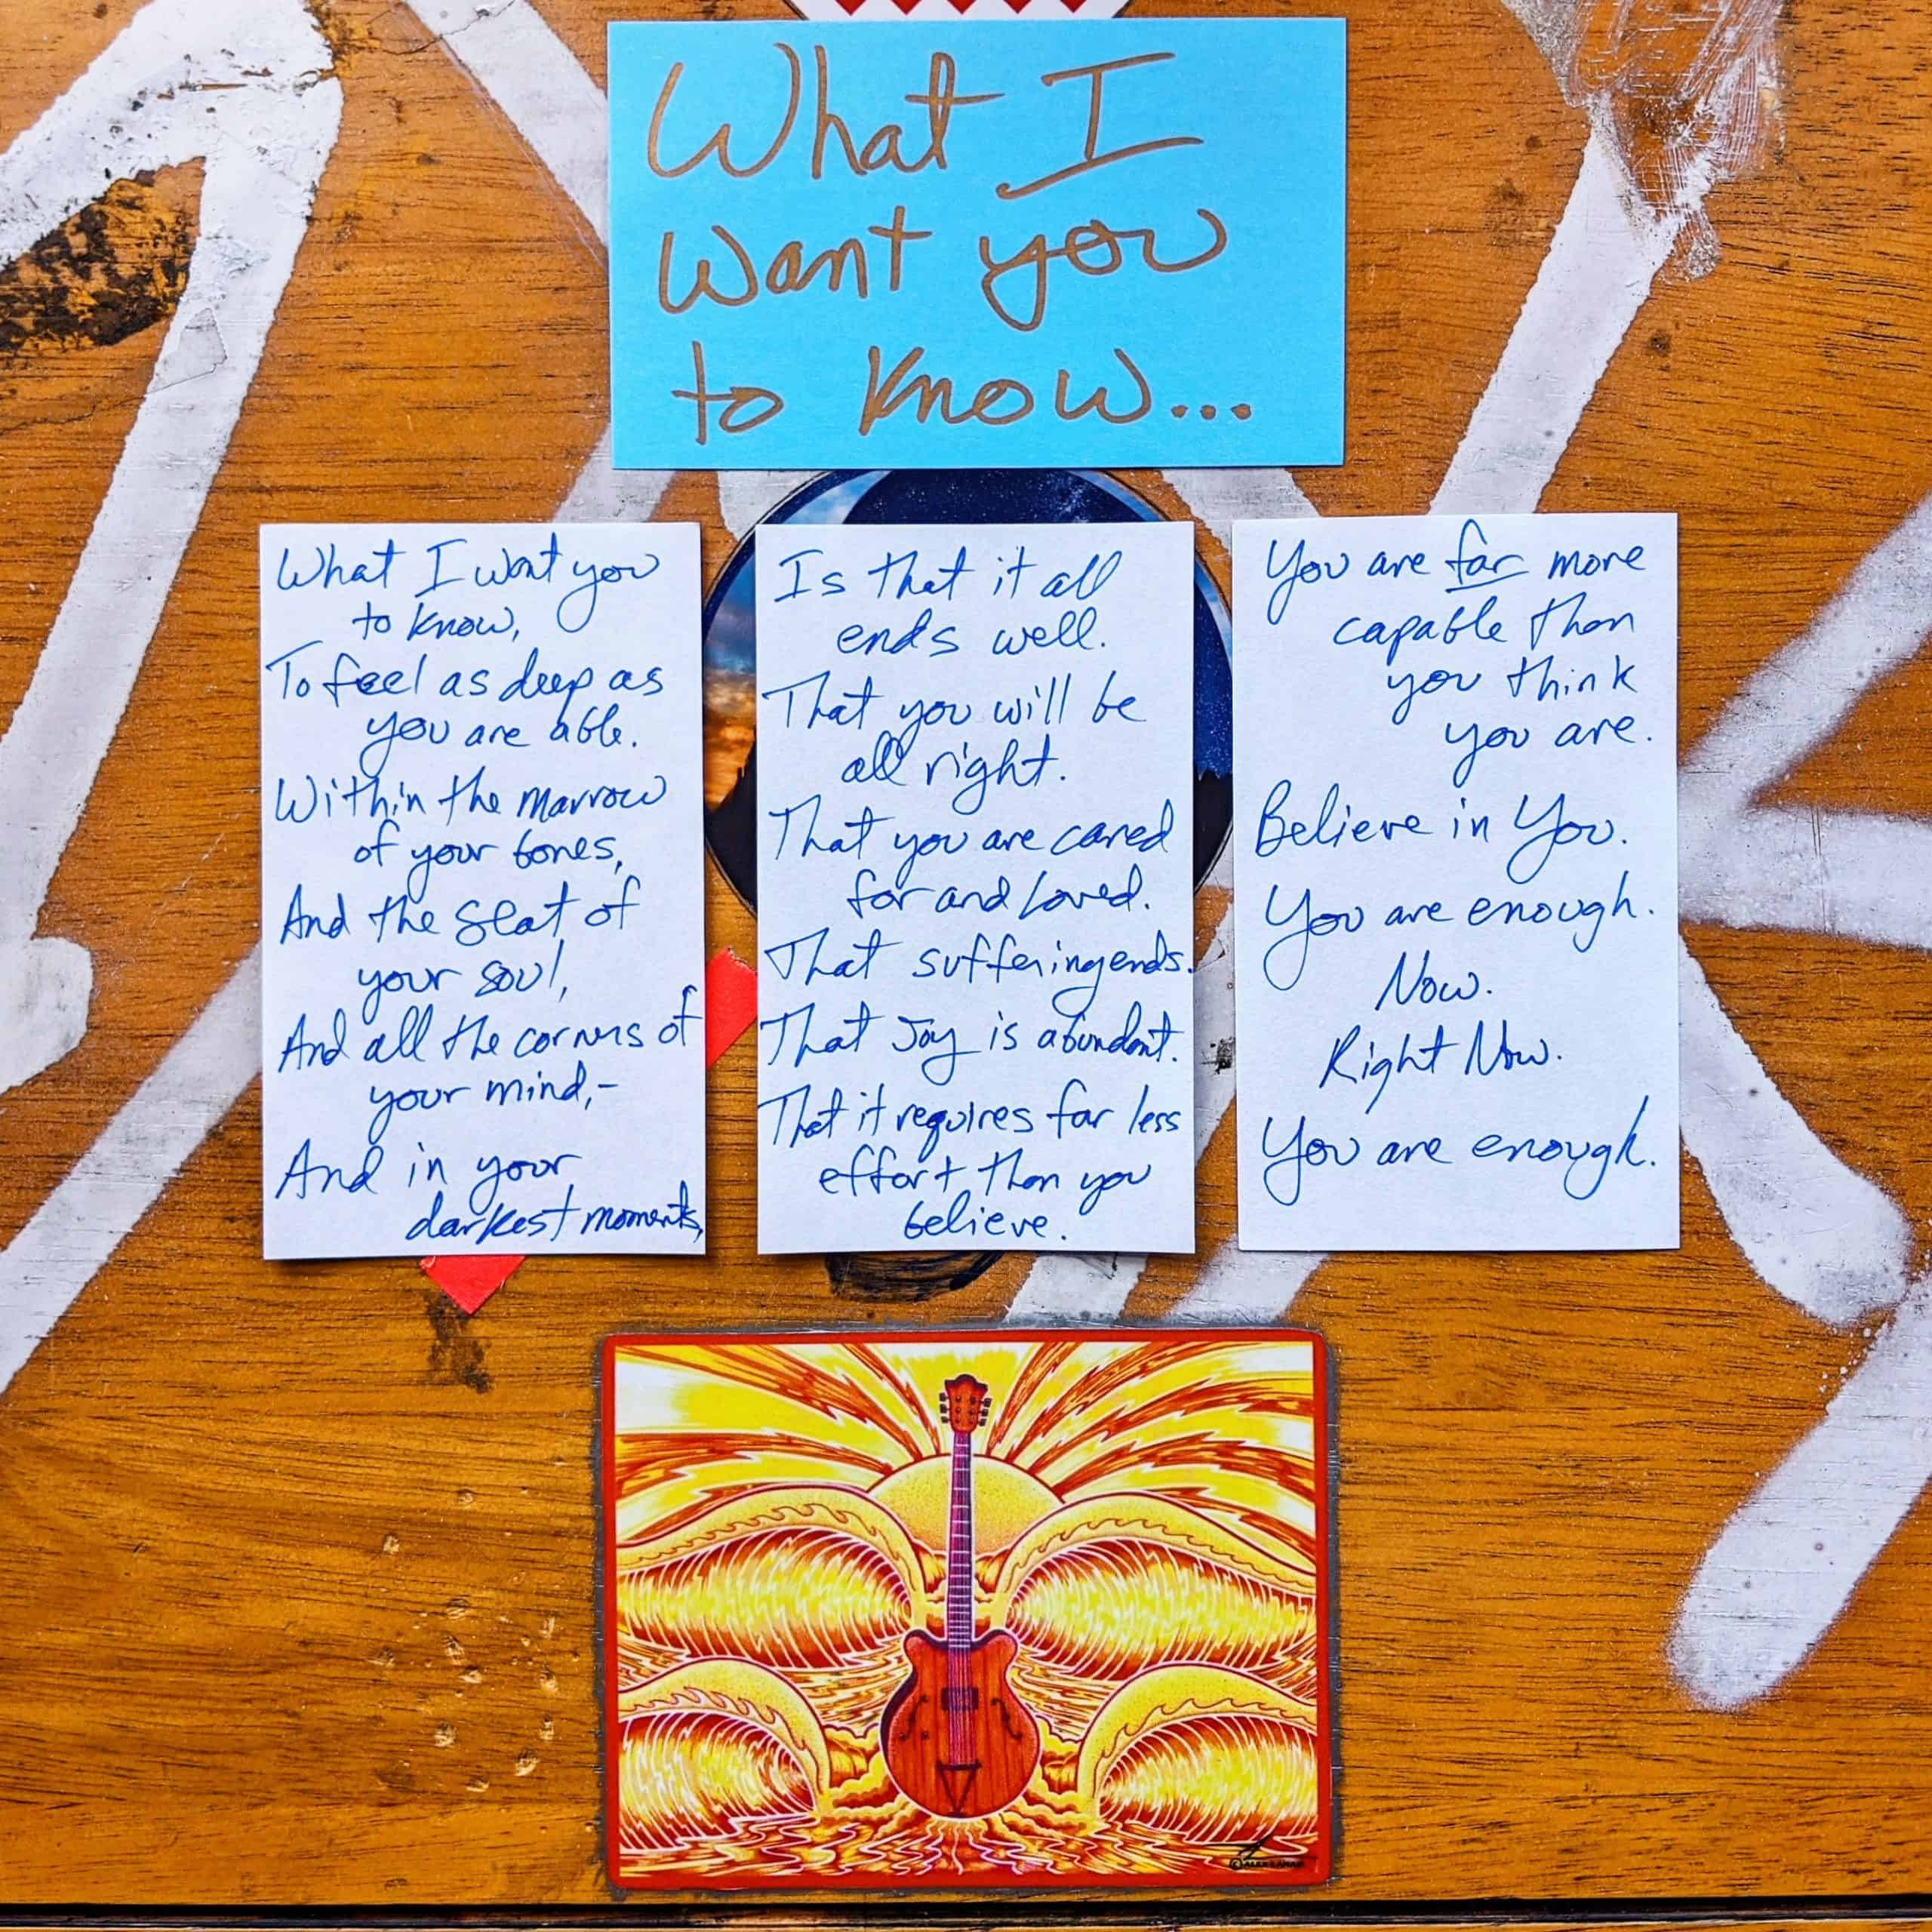 What I
want you
to know...
What I want you
to know,
To feel as deep as
you are able.
Within the marrow
of your bones,
And the seat of
your soul,
And all the corners of
your mind,-
And in your
darkest moments,
Is that it all
ends well.
That you will be
all right.
That you are cared
for and loved.
That suffering ends.
That Joy is abundant.
That it requires far less
effort than you
believe.
You are far more
capable than
you think
you are.
Believe in You.
You are enough.
Now.
Right Now.
You are enough.